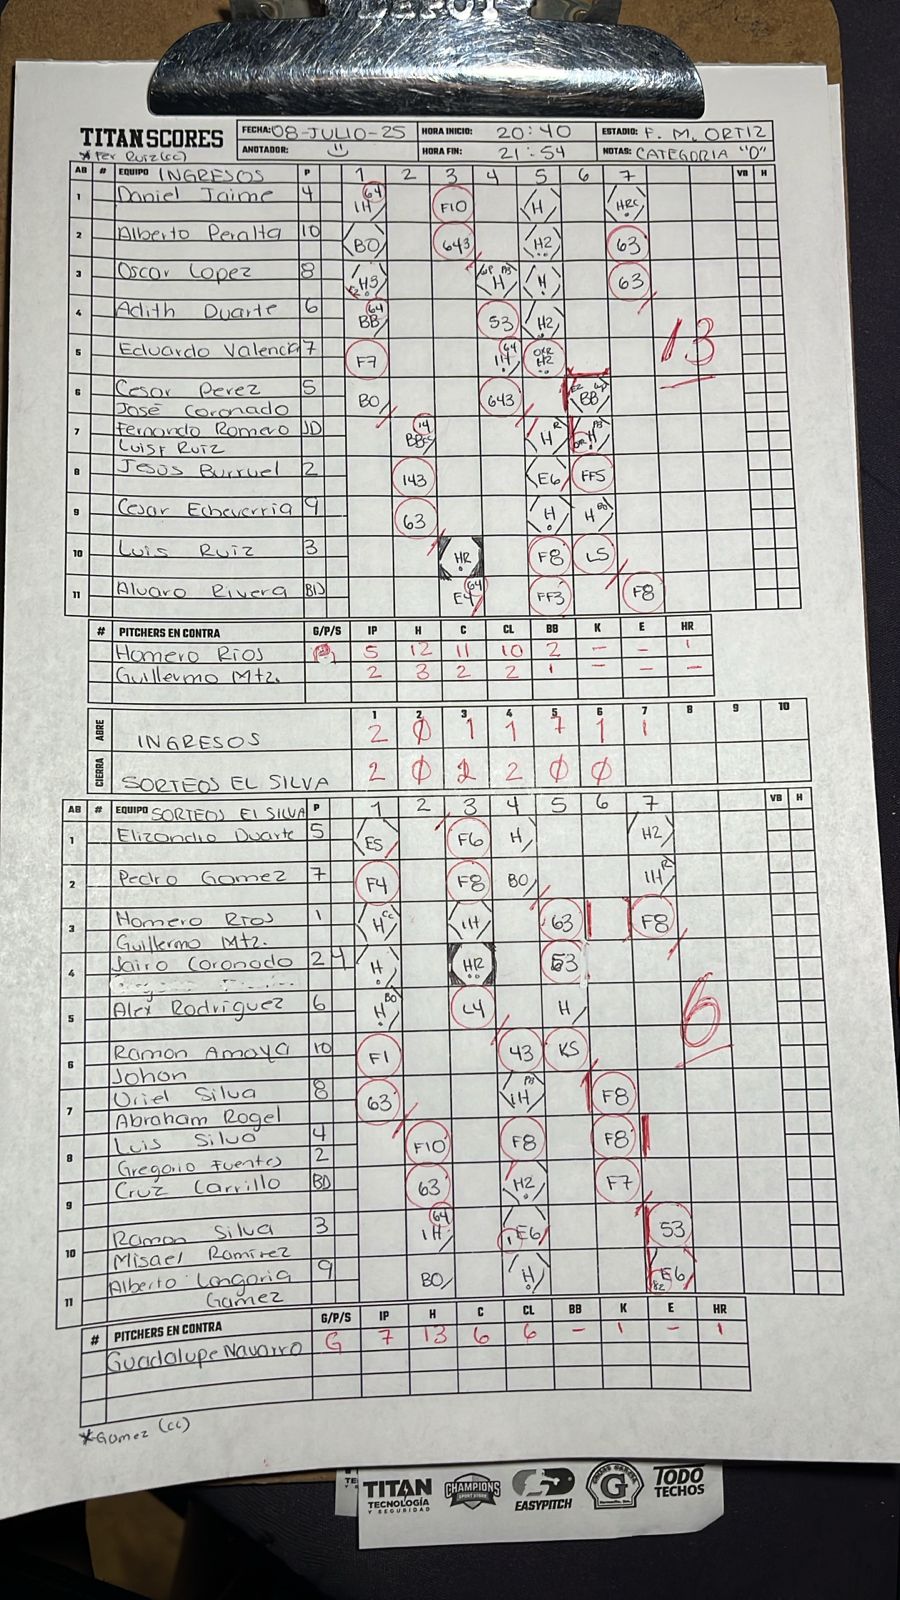 DEPOT
TITAN SCORES
FECHA: 08-JULIO-25 HORA INICIO: 20:40 ESTADIO: F. M. ORTIZ
ANOTADOR: HORA FIN: 21:54 NOTAS: CATEGORIA "D"
AB # EQUIPO INGRESOS P 1 2 3 4 5 6 7 VB H
1 Daniel Jaime 4 1H 64 F10 H HRC
2 Alberto Peralta 10 BO 643 H2 63
3 Oscar Lopez 8 H3 H H 63
4 Adith Duarte 6 BB 64 53 H2
5 Eduardo Valencia 7 F7 1H 64 H2
13
6 Cesar Perez 5 BO 643 BB
José Coronado
7 Fernando Romero JD BB 14 H R H
Luis F Ruiz
8 Jesús Burruel 2 143 E6 FF5
9 Cesar Echeverria 9 63 H H BO
10 Luis Ruiz 3 HR F8 LS
11 Alvaro Rivera BD E4 64 FF3 F8
# PITCHERS EN CONTRA G/P/S IP H C CL BB K E HR
Homero Rios P 5 12 11 10 2 – – 1
Guillermo Mtz. 2 3 2 2 1 – – –
1 2 3 4 5 6 7 8 9 10
ABRE INGRESOS 2 0 1 1 7 1 1
CIERRA SORTEOS EL SILVA 2 0 2 2 0 0
AB # EQUIPO SORTEOS El SILVA P 1 2 3 4 5 6 7 VB H
1 Elizondro Duarte 5 E5 F6 H H2
2 Pedro Gomez 7 F4 F8 BO 1H R
3 Homero Rios 1 H CC 1H 63 F8
Guillermo Mtz.
4 Jairo Coronado 24 H HR 53
5 Alex Rodriguez 6 H BO L4 H
6
6 Ramon Amaya 10 F1 43 KS
Johan
7 Uriel Silva 8 63 1H F8
Abraham Rogel
8 Luis Silva 4 F10 F8 F8
Gregorio Fuentes 2
9 Cruz Carrillo BD 63 H2 F7
10 Ramon Silva 3 1H 64 E6 53
Misael Ramirez
11 Alberto Longoria 9 BO H E6
Gamez
# PITCHERS EN CONTRA G/P/S IP H C CL BB K E HR
Guadalupe Navarro G 7 13 6 6 – 1 – 1
*Gomez (cc)
TITAN
TECNOLOGÍA
Y SEGURIDAD
CHAMPIONS
EASYPITCH
G
TODO
TECHOS